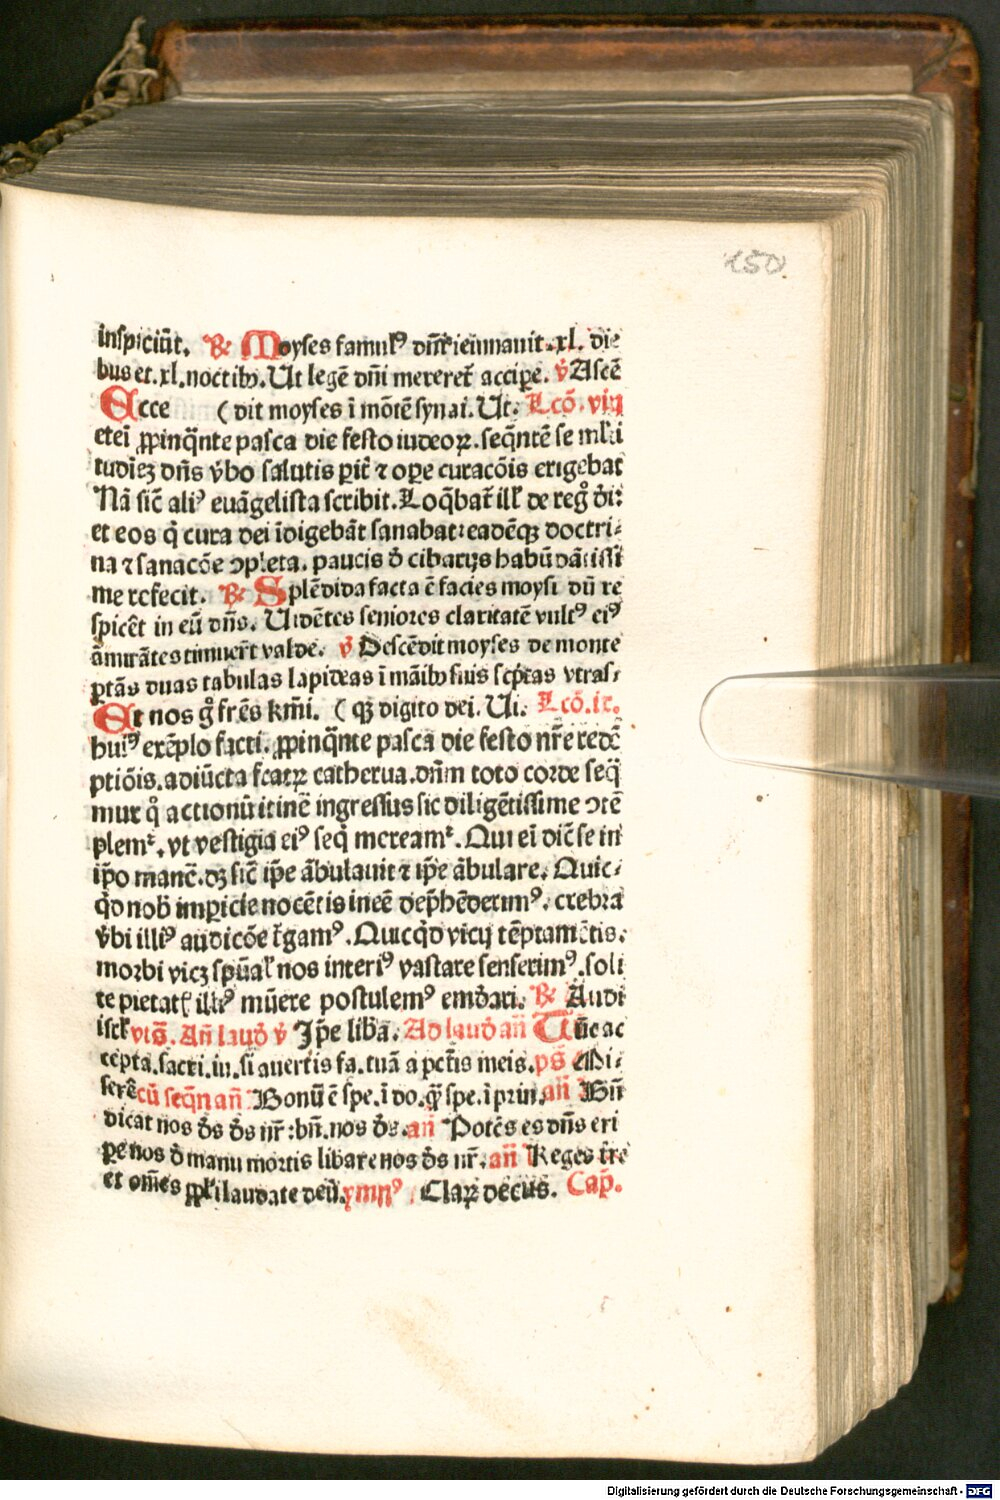 150.
inspiciūt. ℟ Moyses famulꝰ dn̄i ieiunauit .xl. die
bus et .xl. noctibꝫ. Ut legē dn̄i mereret᷑ accipe. ℣ Ascē
Ecce ( dit moyses ī mōtē synai. Ut. Lcō. viij
etei ꝓpinq̄nte pasca die festo iudeoꝝ. seq̄ntē se ml̄ti
tudiēz dn̄s v̄bo salutis pit̄ ⁊ ope curacōis erigebat
Nā sic̄ aliꝰ euāgelista scribit. Loq̄bat᷑ ill̄ de reg̊ di:
et eos q̇ cura dei īdigebāt sanabat: eadēqꝫ doctri-
na ⁊ sanacōe ꝯpleta. paucis d̄ cibarijs habūdātissi
me refecit. ℟ Splēdida facta ē facies moysi dū re
spicēt in eū dn̄s. Uidētes seniores claritatē vultꝰ eiꝰ
āmirātes timuer̄t valde. ℣ Descēdit moyses de monte
ptās duas tabulas lapideas ī māibꝫ suis scptas vtras-
Et nos g̊ frēs km̄i. ( qꝫ digito dei. Ui. Lcō. ix.
huiꝰ exēplo facti. ꝓpinq̄nte pasca die festo nr̄e redē
ptiōis. adiūcta fratꝝ catherua. dn̄m toto corde seq̄
mur q̊ actionū itinē ingressus sic diligētissime ꝯtē
plemᷣ. vt vestigia eiꝰ seq̄ mereamᷣ. Qui ei dic̄ se in
ip̄o manē. dꝫ sic̄ ip̄e ābulauit ⁊ ip̄e ābulare. Quic-
q̇d nob̄ impicie nocētis ineē dep̄hēderimꝰ. crebra
v̄bi illiꝰ audicōe t̄gamꝰ. Quicq̇d vicij tēptamētis.
morbi vicꝫ spūal̄ nos interiꝰ vastare senserimꝰ. soli
te pietatꝭ illiꝰ mūere postulemꝰ emd̄ari. ℟ Audi
isrl̄ vis̄. An̄ laud̄ ℣ Ip̄e liba. Ad laud̄ an̄ Tūc ac
cepta. sacri. in. si auertis fa. tuā a pctīs meis. ps̄ Mi-
serē cū seq̄n an̄ Bonū ē spe. ī do. q̄ꝫ spe. ī prin. an̄ Bn̄
dicat nos d̄s d̄s nr̄: bn̄. nos d̄s. an̄ Potēs es dn̄s eri
pe nos d̄ manu mortis libare nos d̄s nr̄. an̄ Reges tr̄e
et om̄es ppl̄i laudate deū. ymnꝰ. Claꝝ decus. Cap̄.
Digitalisierung gefördert durch die Deutsche Forschungsgemeinschaft - DFG